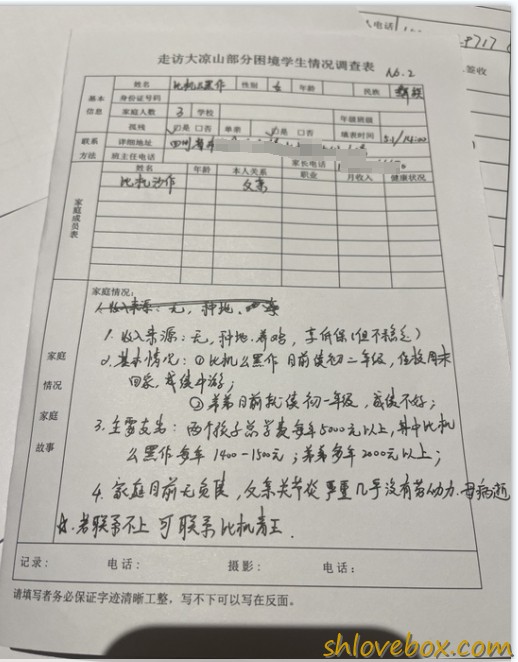 电话
8717
签收
走访大凉山部分困境学生情况调查表 No.2
基本信息 姓名 比机么黑作 性别 女 年龄 民族 彝族
身份证号码
家庭人数 3 学校 年级班级
孤残 √是 口否 单亲 √是 口否 填表时间 5.1/14:00
联系方法 详细地址 四川省
班主任电话 家长电话
家庭成员表 姓名 年龄 本人关系 职业 月收入 健康状况
父亲
家庭情况家庭故事
家庭情况:
1. 收入来源: 无, 种地,
1. 收入来源: 无, 种地. 养鸡, 享低保(但不稳定)
2. 基本情况: ①比机么黑作目前读初二年级, 住校周末
回家, 成绩中游;
②弟弟目前就读初一年级, 成绩不好;
3. 主要支出: 两个孩子总花费每年5000元以上, 其中比机
么黑作每年1400-1500元; 弟弟多年2000元以上;
4. 家庭目前无负债, 父亲关节炎严重几乎没有劳动力. 母病逝
若联系不上可联系比机
记录: 电话: 摄影: 电话:
请填写者务必保证字迹清晰工整, 写不下可以写在反面。
shlovebox.com